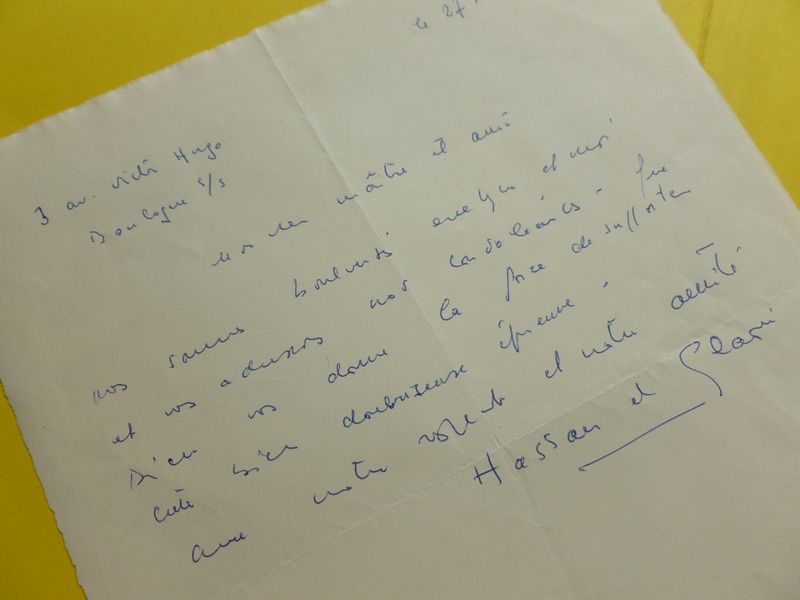 le 27
3 av. Victor Hugo
Boulogne s/s
Mon cher maître et ami
nous sommes bouleversés Evelyne et moi
et vous adressons nos condoléances. Que
Dieu vous donne la force de supporter
cette bien douloureuse épreuve.
avec notre et notre amitié
Hassan el Glaoui